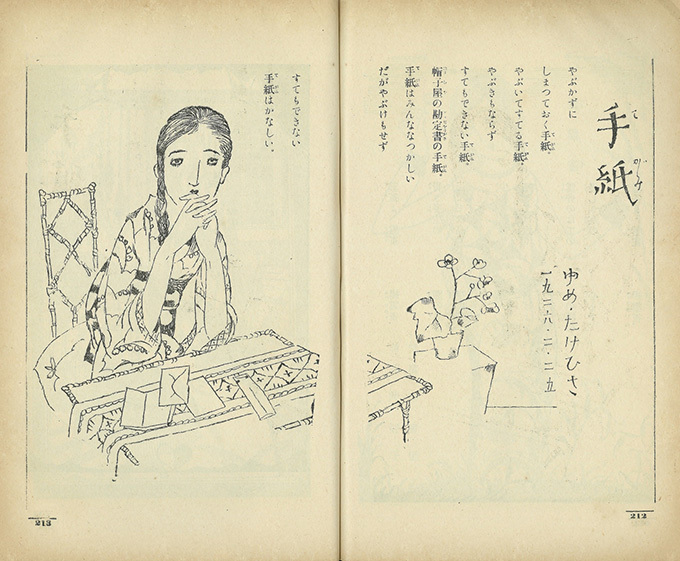 手紙
てがみ
ゆめ・たけひさ
やぶかずに
しまつておく手紙。
やぶいてすてる手紙。
やぶきもならず
すてもできない手紙。
帽子屋の勘定書の手紙。
手紙はみんななつかしい
だがやぶけもせず
212
すてもできない
手紙はかなしい。
213